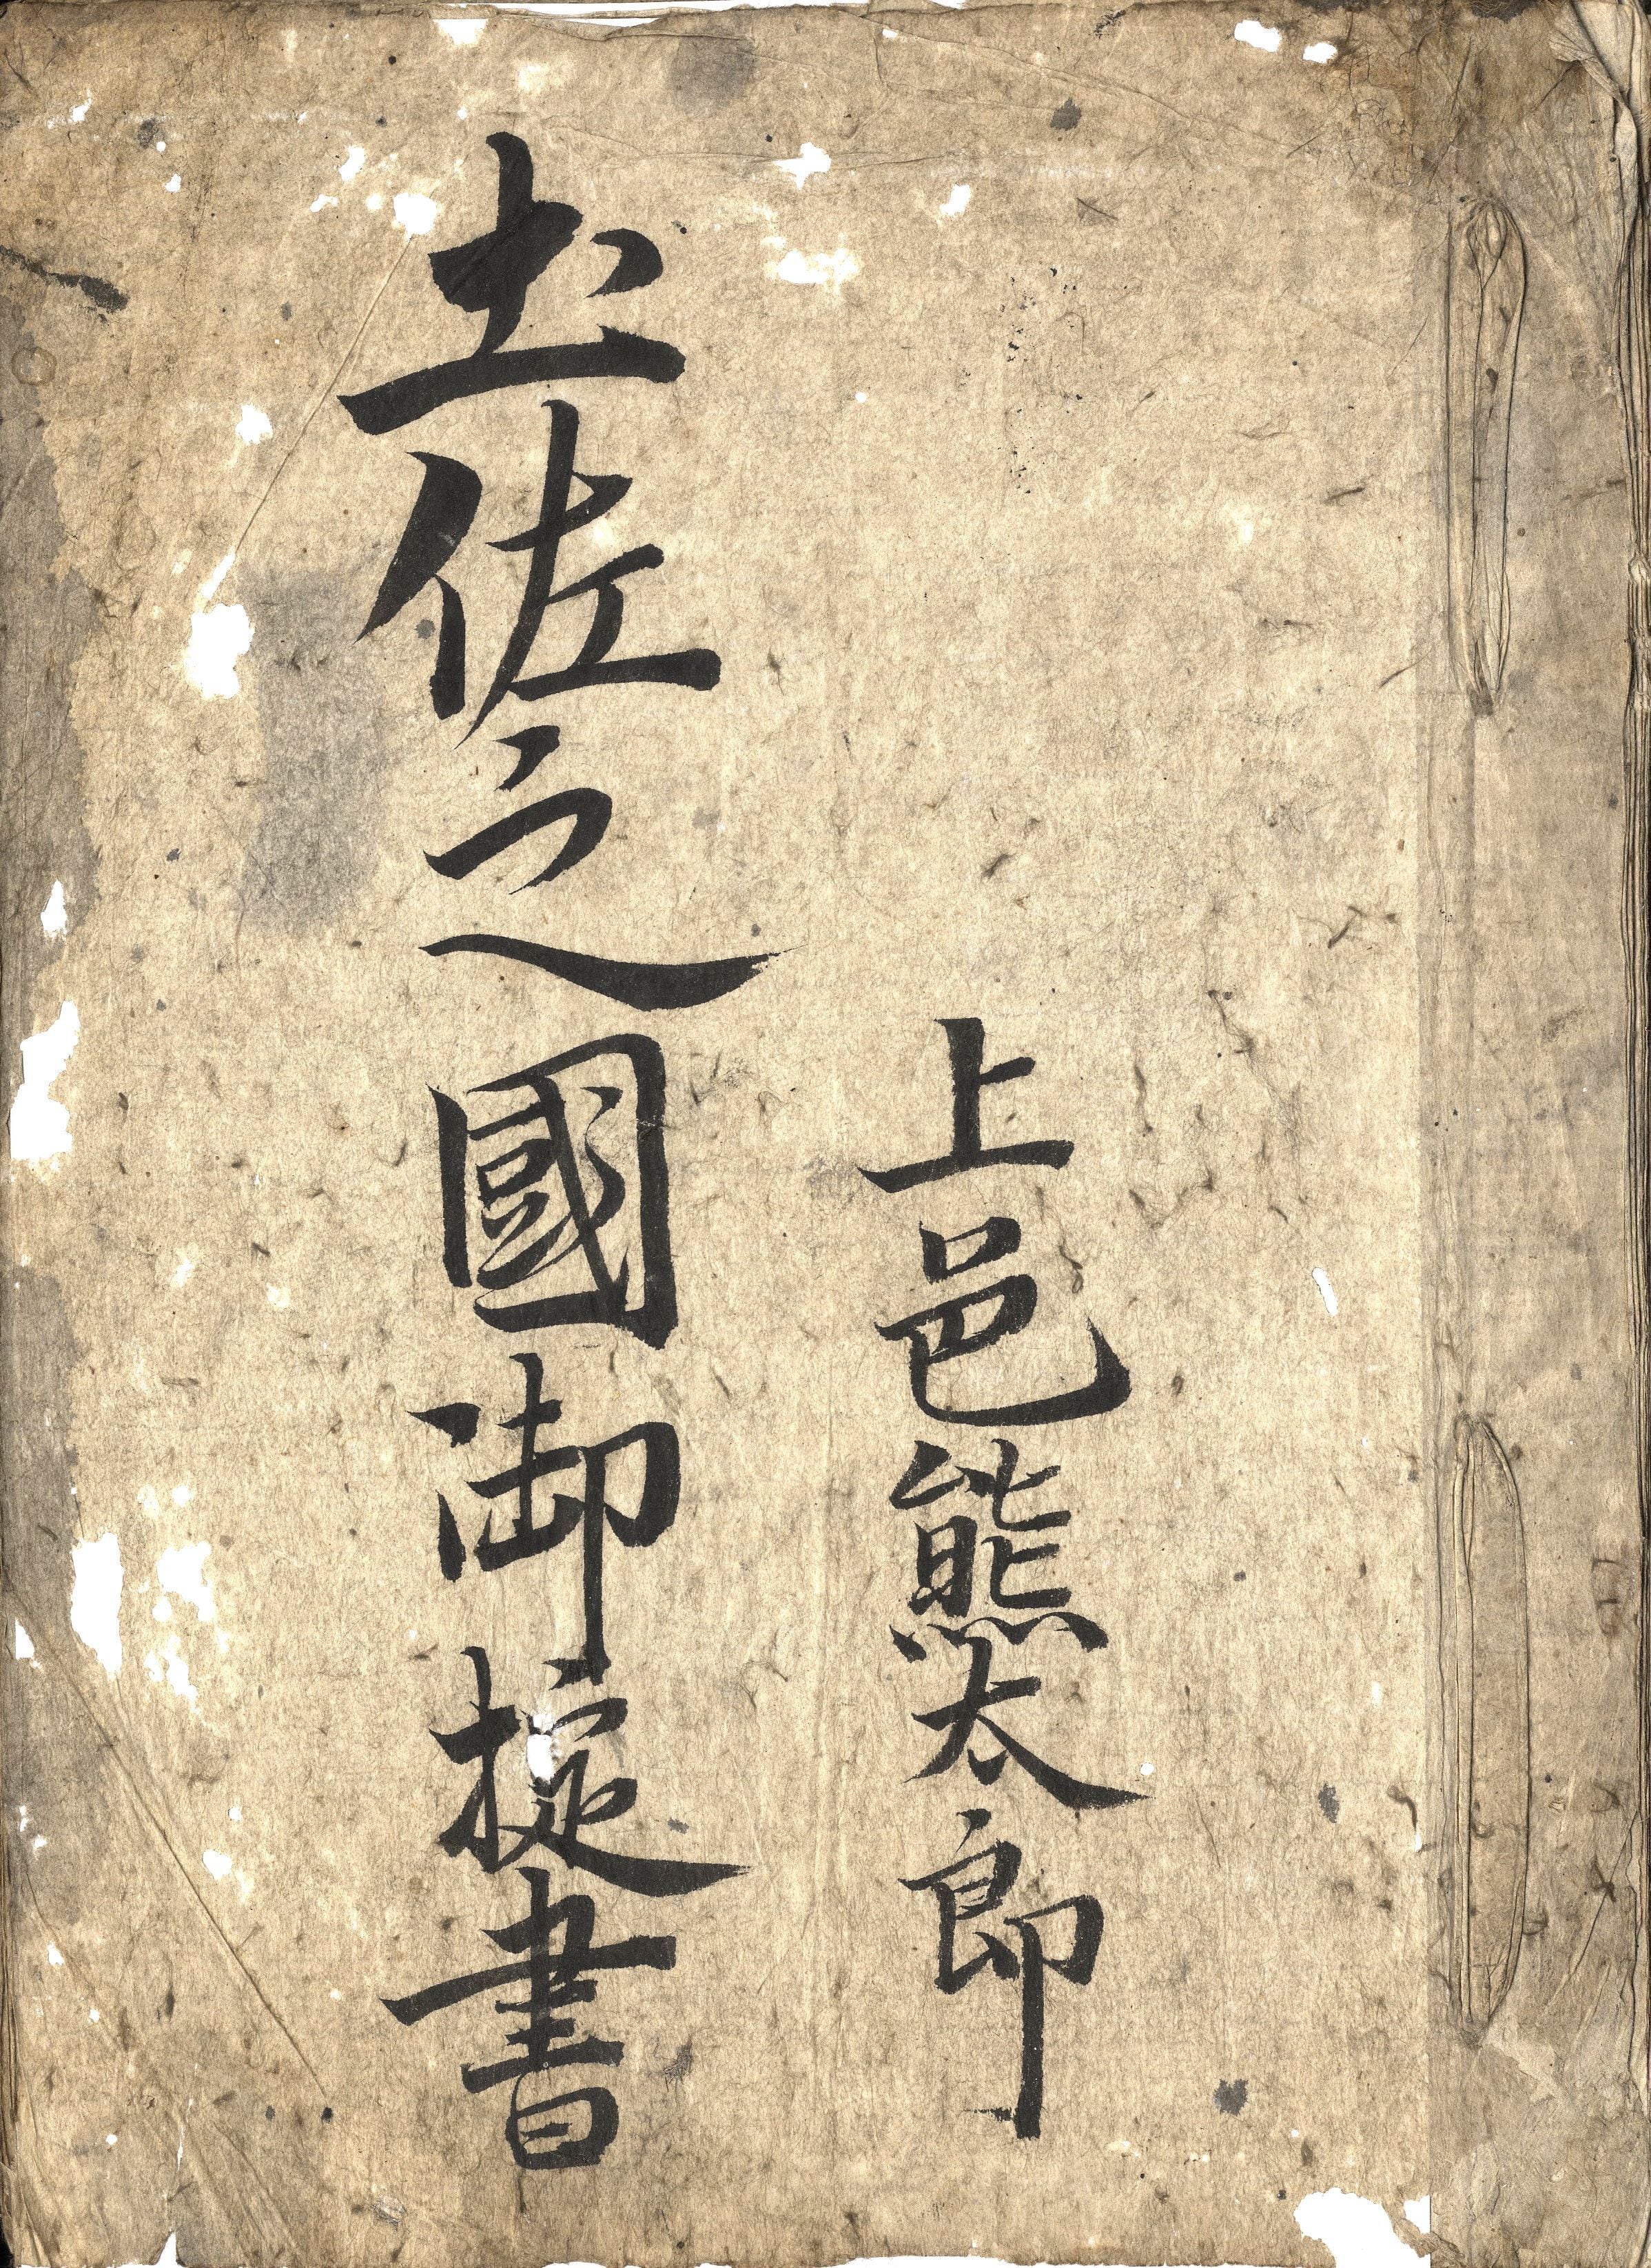 上邑熊太郎
土佐之國御掟書